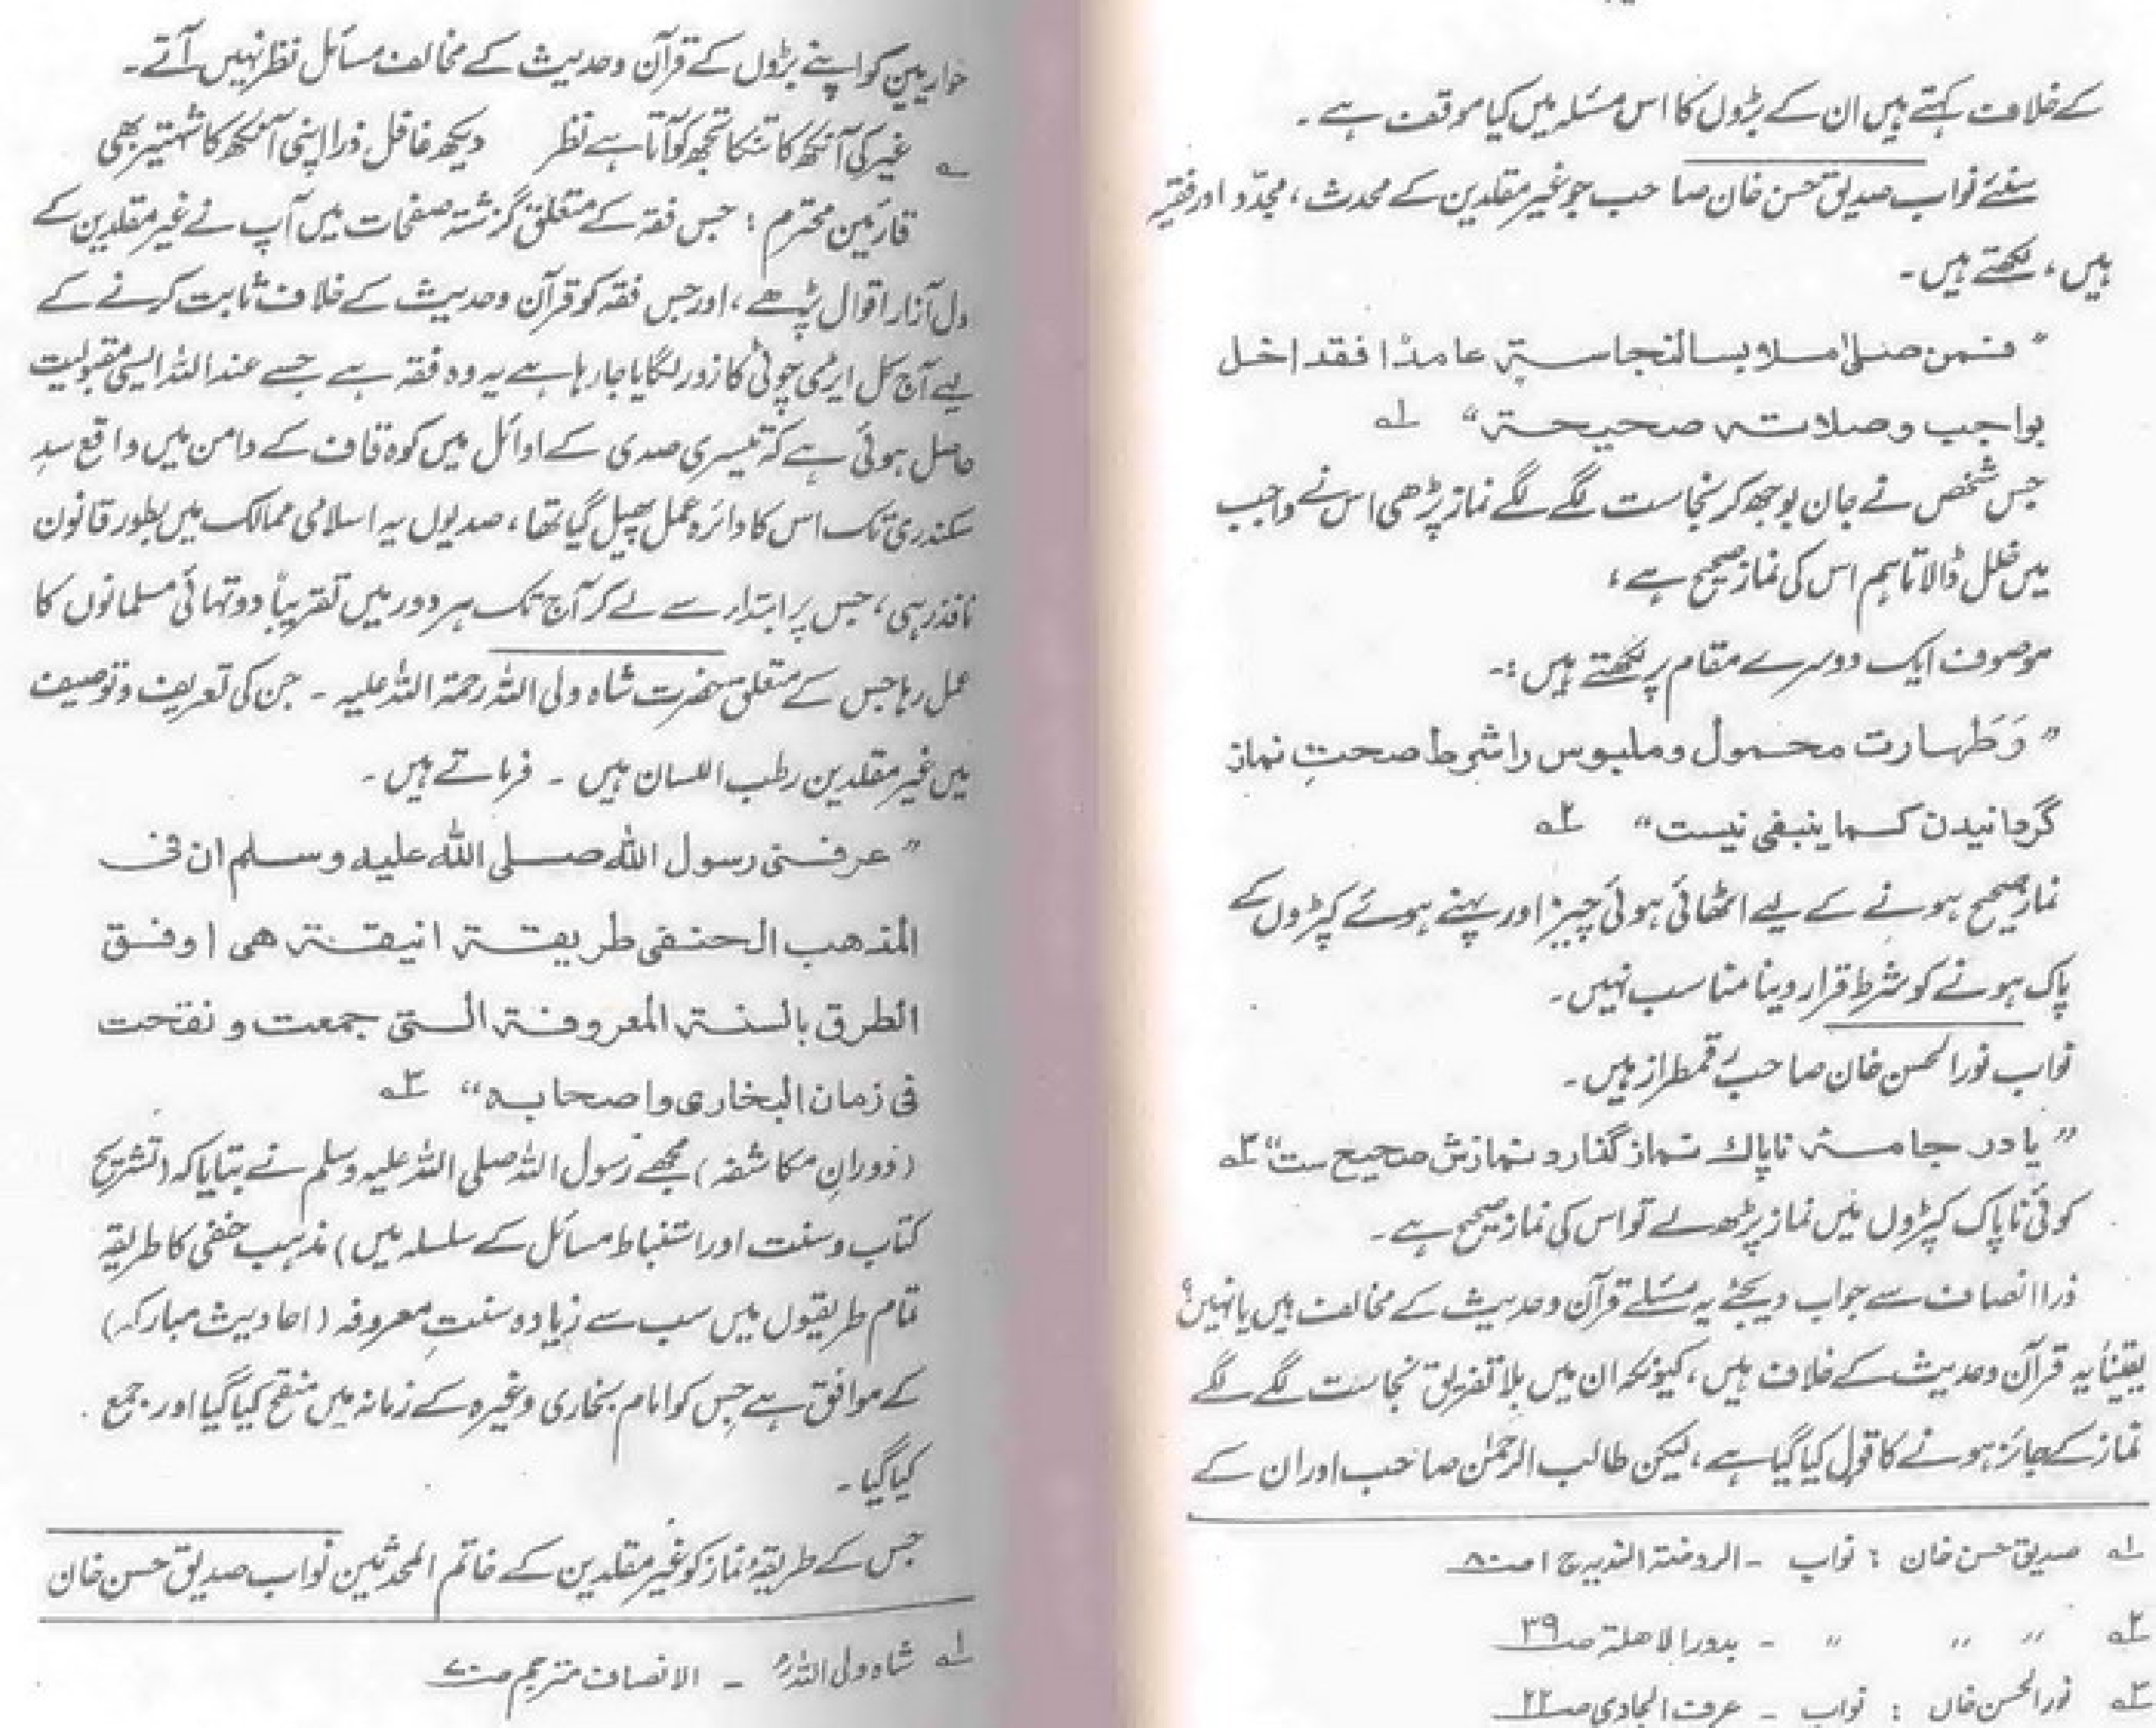 کے خلاف کہتے ہیں ان کے بڑوں کا اس مسئلہ میں کیا موقف ہے۔
سنئے نواب صدیق حسن خان صاحب جو غیر مقلدین کے محدث، مجدّد اور فقیر
ہیں، لکھتے ہیں۔
" فمن صلیٰ ملابسا لنجاسۃ عامدًا فقد اخل
بواجب وصلاتہ صحیحۃ" ۱؎
جس شخص نے جان بوجھ کر نجاست لگے لگے نماز پڑھی اس نے واجب
میں خلل ڈالا تاہم اس کی نماز صحیح ہے،
موصوف ایک دوسرے مقام پر لکھتے ہیں:۔
" وَطہارت محمول وملبوس را شرط صحتِ نماز
گردانیدن کما ینبغی نیست" ۲؎
نماز صحیح ہونے کے لیے اٹھائی ہوئی چیز اور پہنے ہوئے کپڑوں کے
پاک ہونے کو شرط قرار دینا مناسب نہیں۔
نواب نور الحسن خان صاحب رقمطراز ہیں۔
" یا در جامۂ ناپاک نماز گذارد نمازش صحیح ست" ۳؎
کوئی ناپاک کپڑوں میں نماز پڑھ لے تو اس کی نماز صحیح ہے۔
ذرا انصاف سے جواب دیجئے یہ مسئلے قرآن وحدیث کے مخالف ہیں یا نہیں؟
یقیناً یہ قرآن وحدیث کے خلاف ہیں، کیونکہ ان میں بلا تفریق نجاست لگے لگے
نماز کے جائز ہونے کا قول کیا گیا ہے، لیکن طالب الرحمٰن صاحب اور ان کے
۱؎ صدیق حسن خان : نواب - الروضۃ الندیہ ج ۱ ص۸۰
۲؎ " " " - بدور الاھلۃ ص۳۹
۳؎ نور الحسن خاں : نواب - عرف الجادی ص۲۲
حواریین کو اپنے بڑوں کے قرآن وحدیث کے مخالف مسائل نظر نہیں آتے۔
؎ غیر کی آنکھ کا تنکا تجھ کو آتا ہے نظر دیکھ غافل ذرا اپنی آنکھ کا شہتیر بھی
قارئین محترم : جس فقہ کے متعلق گزشتہ صفحات میں آپ نے غیر مقلدین کے
دل آزار اقوال پڑھے، اور جس فقہ کو قرآن وحدیث کے خلاف ثابت کرنے کے
لیے آج کل ایڑی چوٹی کا زور لگایا جا رہا ہے یہ وہ فقہ ہے جسے عند اللہ ایسی مقبولیت
حاصل ہوئی ہے کہ تیسری صدی کے اوائل میں کوہ قاف کے دامن میں واقع سدِ
سکندری تک اس کا دائرہ عمل پھیل گیا تھا، صدیوں یہ اسلامی ممالک میں بطور قانون
نافذ رہی، جس پر ابتداء سے لے کر آج تک ہر دور میں تقریباً دو تہائی مسلمانوں کا
عمل رہا جس کے متعلق حضرت شاہ ولی اللہ رحمۃ اللہ علیہ - جن کی تعریف وتوصیف
میں غیر مقلدین رطب اللسان ہیں - فرماتے ہیں۔
" عرفنی رسول اللہ صلی اللہ علیہ وسلم ان فی
المذھب الحنفی طریقۃ انیقۃ ھی اوفق
الطرق بالسنۃ المعروفۃ التی جمعت و نقحت
فی زمان البخاری واصحابہ" ۳؎
(دورانِ مکاشفہ) مجھے رسول اللہ صلی اللہ علیہ وسلم نے بتایا کہ (تشریح
کتاب وسنت اور استنباط مسائل کے سلسلہ میں) مذہب حنفی کا طریقہ
تمام طریقوں میں سب سے زیادہ سنتِ معروفہ (احادیث مبارکہ)
کے موافق ہے جس کو امام بخاری وغیرہ کے زمانہ میں منقح کیا گیا اور جمع
کیا گیا۔
جس کے طریقۂ نماز کو غیر مقلدین کے خاتم المحدثین نواب صدیق حسن خان
۱؎ شاہ ولی اللہؒ - الانصاف مترجم